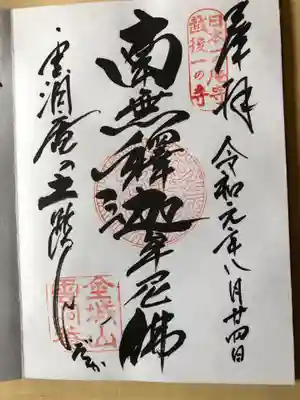 拝
日本一庵寺
越後一の寺
令和元年八月廿四日
南無釋迦牟尼佛
雲洞庵の土踏んだか
金城山
雲洞庵